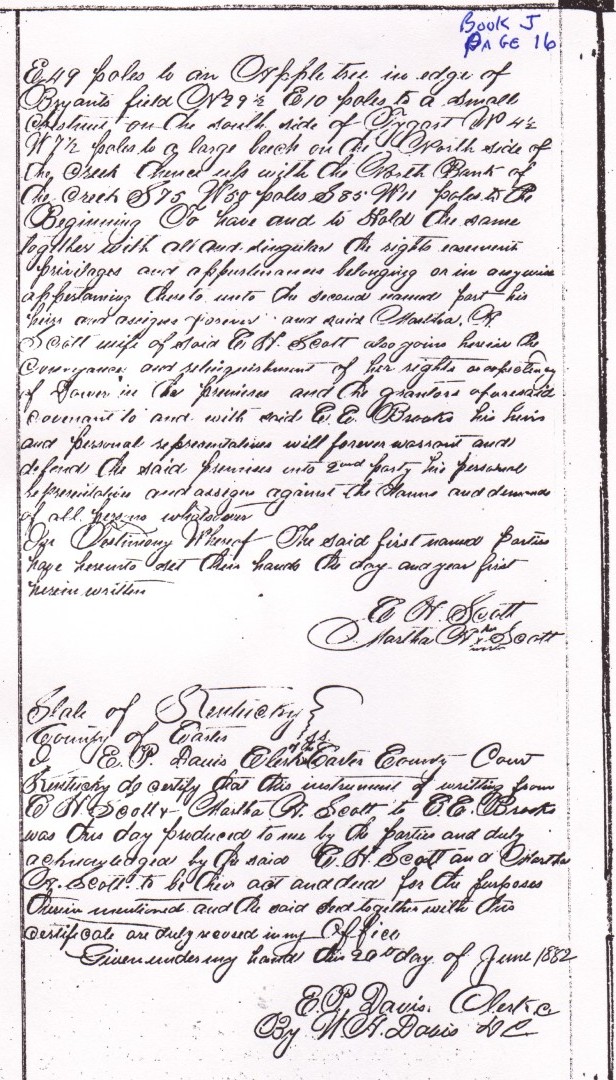 Book J
PAGE 16
E 49 poles to an Apple tree in edge of
Bryants field N 29 ½ E 10 poles to a small
chestnut on the south side of Tygart N 4½
W 7½ poles to a large beech on the North side of
the Creek thence up with the North Bank of
the Creek S 75 W 50 poles S 85 W 11 poles to the
Beginning To have and to Hold the same
together with all and singular the rights easements
privilages and appurtinances belonging or in anywise
appertaining thereto unto the second named part his
heirs and assigns forever and said Martha. A.
Scott wife of said E H. Scott also joins herein the
conveyance and relinquishment of her rights
of Dower in the premises and the grantors aforesaid
covenant to and with said E. E. Brooks his heirs
and personal representatives will forever warrant and
defend the said premises unto 2nd party his personal
representative and assigns against the claims and demands
of all persons whatsoever
In Testimony Whereof The said first named Parties
have hereunto set their hands the day and year first
herein written
E H. Scott
Martha her x mark Scott
State of Kentucky
County of Carter ss
I E. P. Davis Clerk of the Carter County Court
Kentucky do certify that this instrument of writting from
E H Scott & Martha A. Scott to E. E. Brooks
was this day produced to me by the parties and duly
acknowledged by the said E. H. Scott and Martha
A. Scott. to be their act and deed for the purposes
therein mentioned and the said deed together with this
certificate are duly recored in my Office
Given under my hand this 20th day of June 1882
E. P Davis. Clerk C
By W A. Davis D C